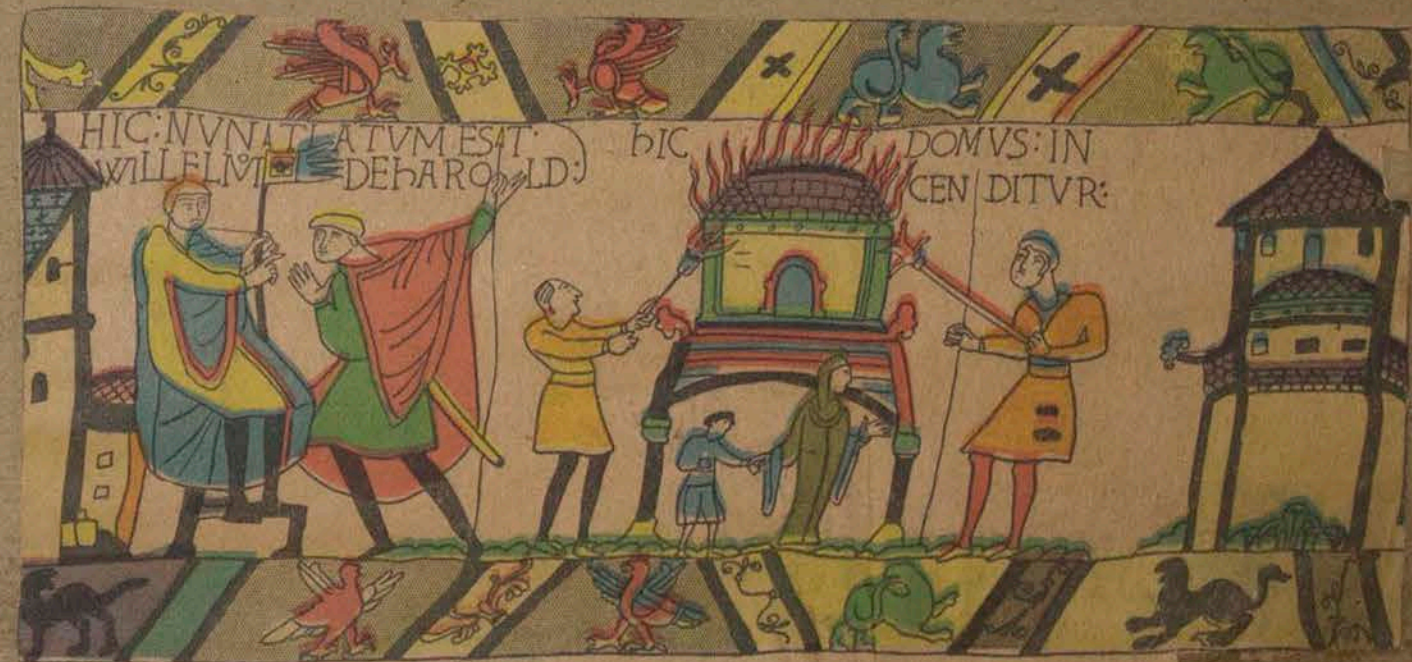 HIC:NVNTIATVM EST:
WILLELM DE hAROLD:
hIC DOMVS:IN
CENDITVR: